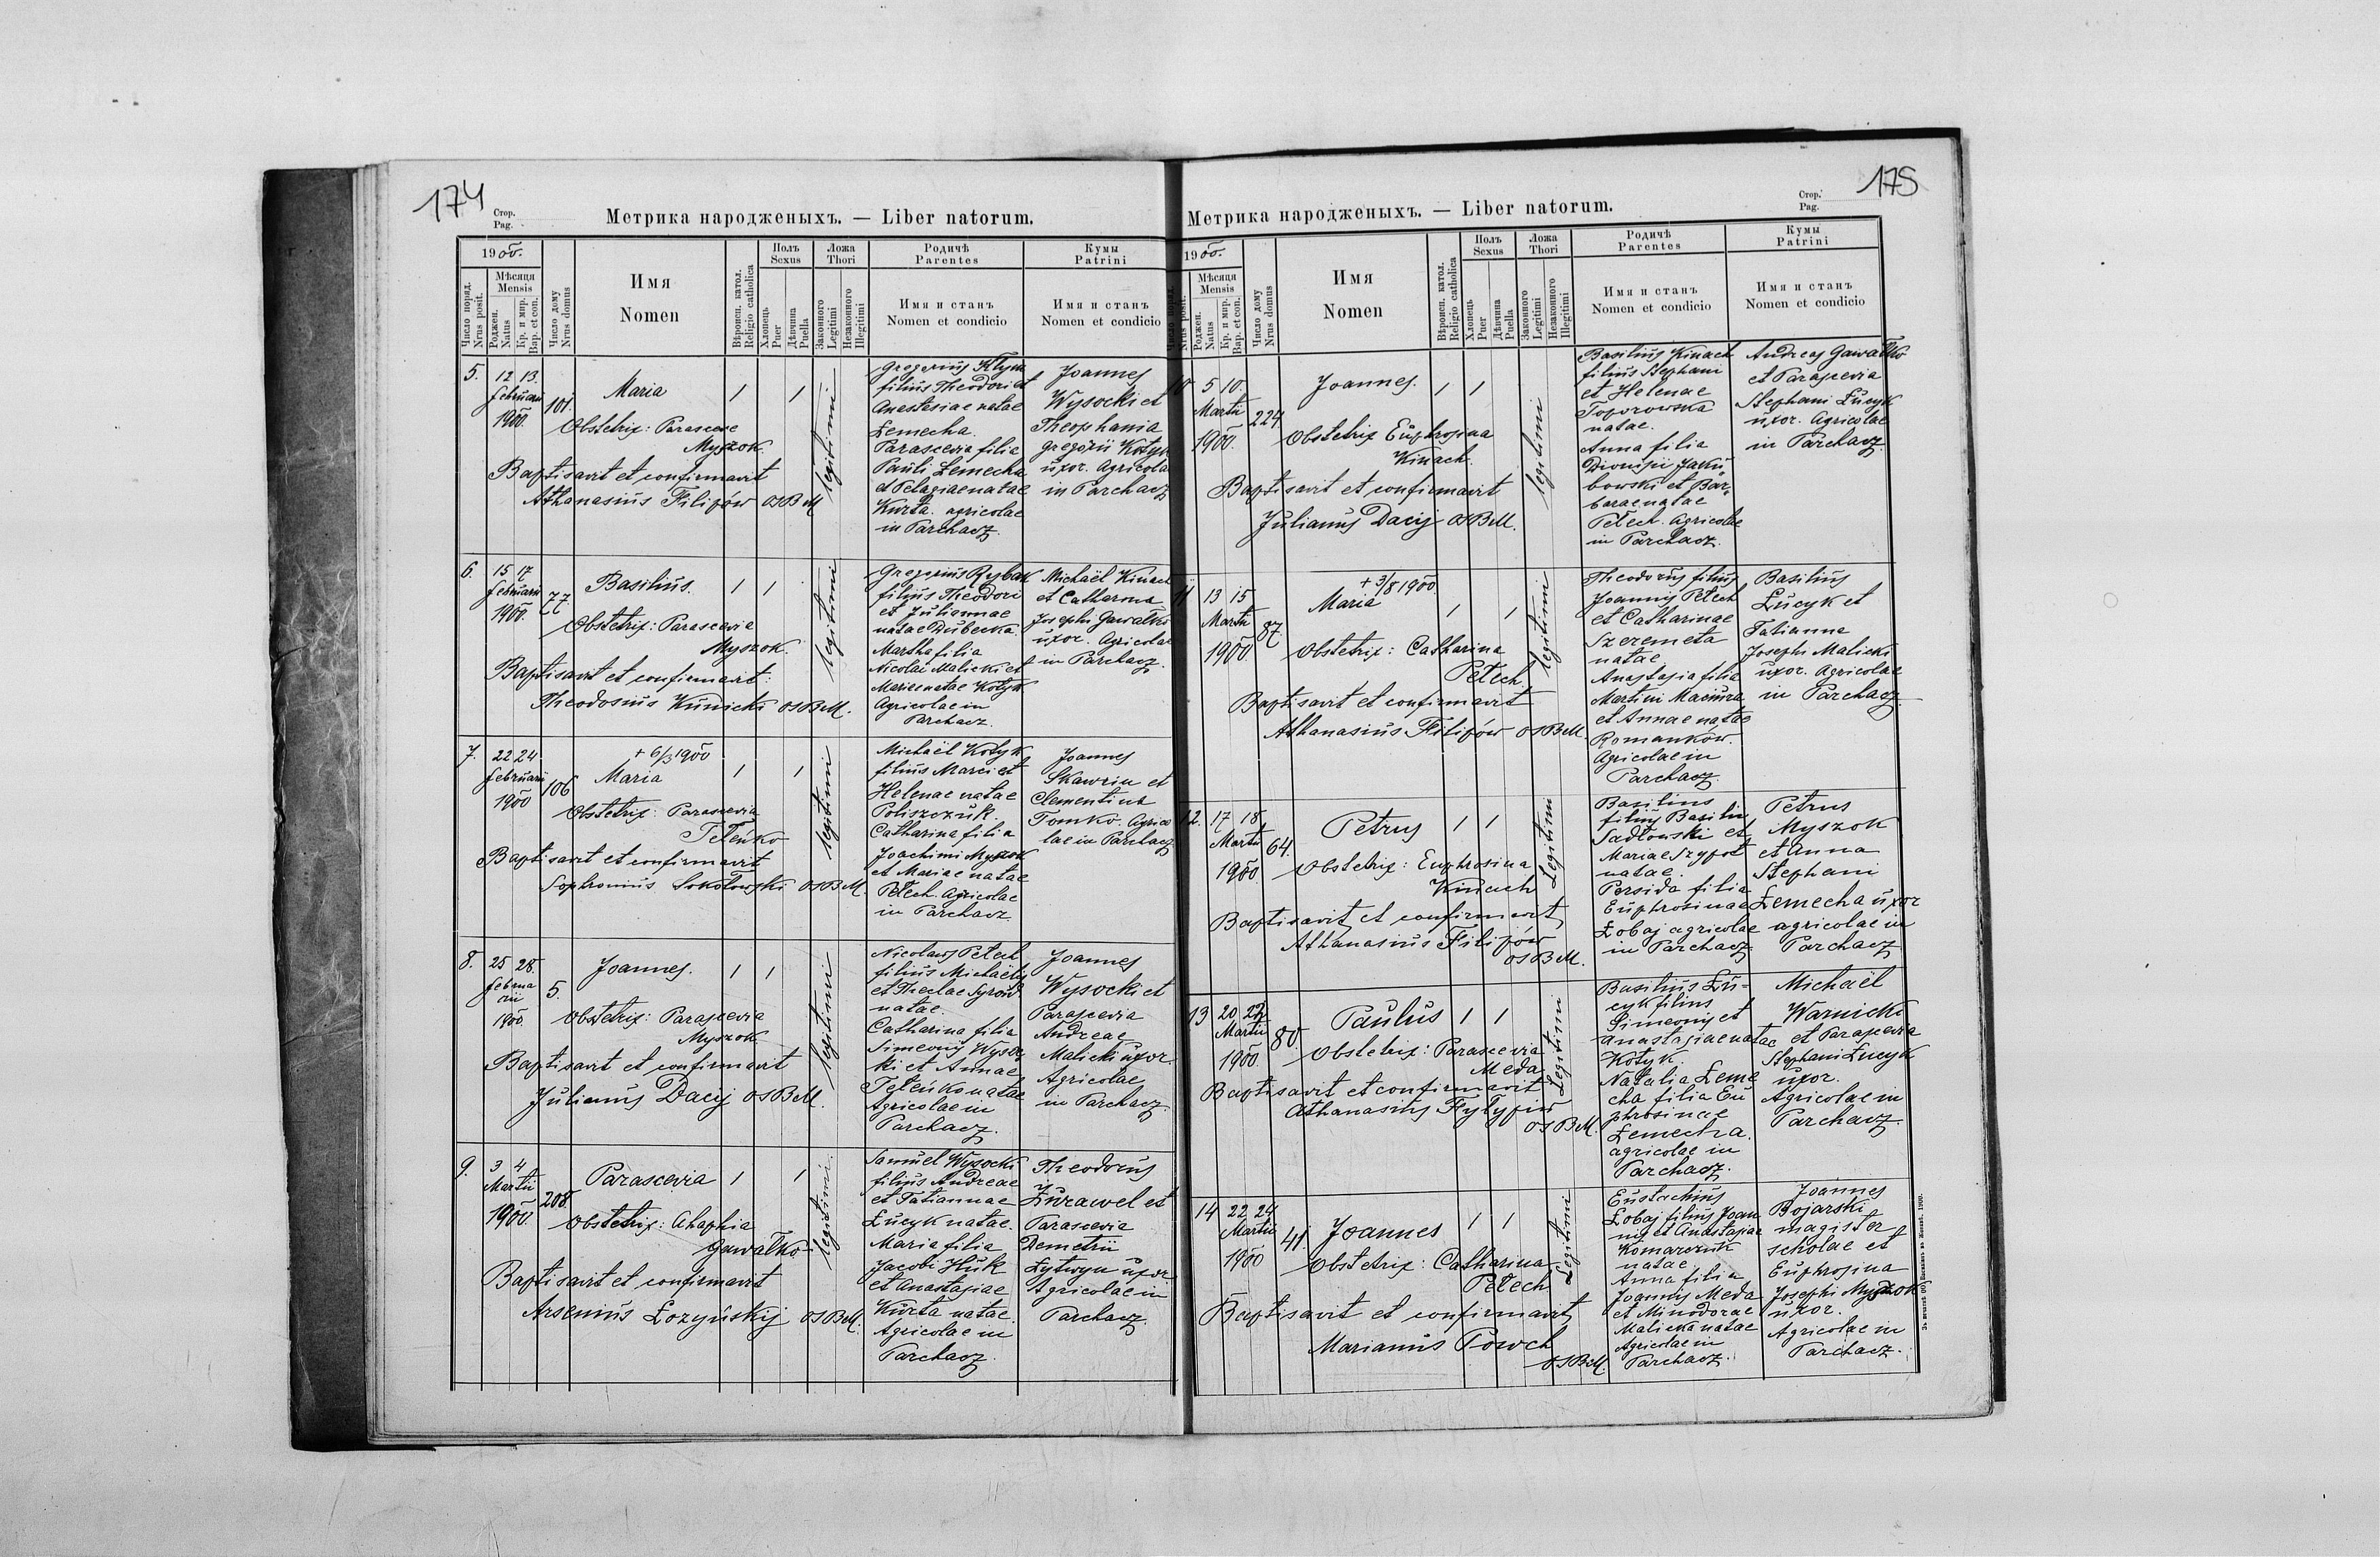 174
Стор.
Pag.
Метрика народженыхъ. — Liber natorum.
1900.
Число поряд.
Nrus posit.
Мѣсяця
Mensis
Роджен.
Natus
Кр. и мир.
Bap. et con.
Число дому
Nrus domus
Имя
Nomen
Вѣроисп. катол.
Religio catholica
Полъ
Sexus
Хлопець
Puer
Дѣвчина
Puella
Ложа
Thori
Законного
Legitimi
Незаконного
Illegitimi
Родичѣ
Parentes
Имя и станъ
Nomen et condicio
Кумы
Patrini
Имя и станъ
Nomen et condicio
5. 12 13.
februarii
1900.
101.
Maria
1 1
legitimi
Obstetrix: Parascene
Myszok.
Baptisavit et confirmavit
Athanasiŭs Filipów OSBM
Gregoriŭs Kłym
filiŭs Theodori et
Anastasiae natae
Łemecha.
Parascevia filia
Paŭli Łemecha
et Pelagiae natae
Kŭrta. agricolae
in Parchacz.
Joannes
Wysocki et
Theophania
Gregorii Kotyk
ŭxor. Agricolae
in Parchacz
6. 15 17
februarii
1900.
77.
Basiliŭs.
1 1
legitimi
Obstetrix: Parascevia
Myszok.
Baptisavit et confirmavit:
Theodosiŭs Kŭnicki OSBM.
Gregoriŭs Rybak
filiŭs Theodori
et Jŭliannae
natae Dŭbecka.
Martha filia
Nicolai Malicki et
Mariae natae Kotyk
Agricolae in
Parchacz.
Michaël Kinach
et Catharina
Josephi Gawałko
ŭxor. Agricolae
in Parchacz.
7. 22 24
februarii
1900
106
+ 6/3 1900
Maria
1 1
legitimi
Obstetrix: Parascevia
Teteńko
Baptisavit et confirmavit
Sophroniŭs Sokołowski OSBM.
Michaël Kotyk
filiŭs Marci et
Helenae natae
Poliszczŭk.
Catharina filia
Joachimi Myszok
et Mariae natae
Petech. Agricolae
in Parchacz
Joannes
Skawrin et
Clementina
Tomko. Agrico
lae in Parchacz
8. 25 28.
februa
rii
1900.
5.
Joannes.
1 1
legitimi
Obstetrix: Parascevia
Myszok
Baptisavit et confirmavit
Jŭlianŭs Dacij OSBM.
Nicolaus Petech
filiŭs Michaëlis
et Theclae Syrów
natae.
Catharina filia
Simeonis Wysoc
ki et Annae
Teteńko natae
Agricolae in
Parchacz.
Joannes
Wysocki et
Parascevia
Andreae
Malicki ŭxor.
Agricolae
in Parchacz.
9. 3 4
Martii
1900.
208.
Parascevia
1 1
legitimi
Obstetrix: Ahaphia
Gawałko
Baptisavit et confirmavit
Arseniŭs Łozyńskij OSBM.
Samŭel Wysocki
filiŭs Andreae
et Tatiannae
Łŭcyk natae.
Maria filia
Jacobi Hŭk
et Anastasiae
Kŭrta natae
Agricolae in
Parchacz.
Theodorŭs
Żŭrawel et
Parascevia
Demetrii
Łytwyn ŭxor
Agricolae in
Parchacz.
175
Стор.
Pag.
Метрика народженыхъ. — Liber natorum.
1900.
Nrus posit.
Мѣсяця
Mensis
Роджен.
Natus
Кр. и мир.
Bap. et con.
Число дому
Nrus domus
Имя
Nomen
Вѣроисп. катол.
Religio catholica
Полъ
Sexus
Хлопець
Puer
Дѣвчина
Puella
Ложа
Thori
Законного
Legitimi
Незаконного
Illegitimi
Родичѣ
Parentes
Имя и станъ
Nomen et condicio
Кумы
Patrini
Имя и станъ
Nomen et condicio
10 5 10.
Martii
1900.
224
Joannes.
1 1
legitimi
Obstetrix Eŭphrosina
Kinach.
Baptisavit et confirmavit
Jŭlianŭs Dacij OSBM.
Basiliŭs Kinach
filiŭs Stephani
et Helenae
Toporowska
natae.
Anna filia
Dionisii Jakŭ
bowski et Bar
barae natae
Petech. Agricolae
in Parchacz.
Andreas Gawałko
et Parascevia
Stephani Łŭcyk
ŭxor. Agricolae
in Parchacz.
11 13 15
Martii
1900
87
+ 3/8 1900
Maria
1 1
legitimi
Obstetrix: Catharina
Petech.
Baptisavit et confirmavit
Athanasiŭs Filipów OSBM.
Theodorŭs filiŭs
Joannis Petech
et Catharinae
Szeremeta
natae
Anastasia filia
Martini Maciŭra
et Annae natae
Romanków.
Agricolae in
Parchacz.
Basiliŭs
Łŭcyk et
Tatianna
Josephi Malicki
ŭxor. Agricolae
in Parchacz.
12. 17 18
Martii
1900
64.
Petrus
1 1
Legitimi
Obstetrix: Euphrosina
Kinach
Baptisavit et confirmavit
Athanasiŭs Filipów
OSBM.
Basilius
filiŭs Basilii
Sadłowski et
Mariae Szypot
natae.
Persida filia
Eŭphrosinae
Łobaj agricolae
in Parchacz
Petrus
Myszok
et Anna
Stephani
Łemecha ŭxor
agricolae in
Parchacz
13 20 22
Martii
1900
80.
Paŭlŭs
1 1
Legitimi
Obstetrix: Parascevia
Meda
Baptisavit et confirmavit
Athanasiŭs Fyłypiw
OSBM.
Basiliŭs Łŭ-
cyk filius
Simeonis et
Anastasiae natae
Kotyk.
Natalia Łeme
cha filia Eŭ
phrosinae
Łemecha.
agricolae in
Parchacz.
Michaël
Warnicki
et Parascevia
Stephani Łucyk
ŭxor.
Agricolae in
Parchacz.
14 22 24
Martii
1900
41.
Joannes
1 1
Legitimi
Obstetrix: Catharina
Petech
Baptisavit et confirmavit
Marianŭs Powch
OSBM.
Eŭstachiŭs
Łobaj filiŭs Joan
nis et Anastasiae
Komarczŭk
natae
Anna filia
Joannis Meda
et Minodorae
Malicka natae
Agricolae in
Parchacz.
Joannes
Bojarski
magister
scholae et
Eŭphrosina
Josephi Myszok
ŭxor.
Agricolae in
Parchacz.